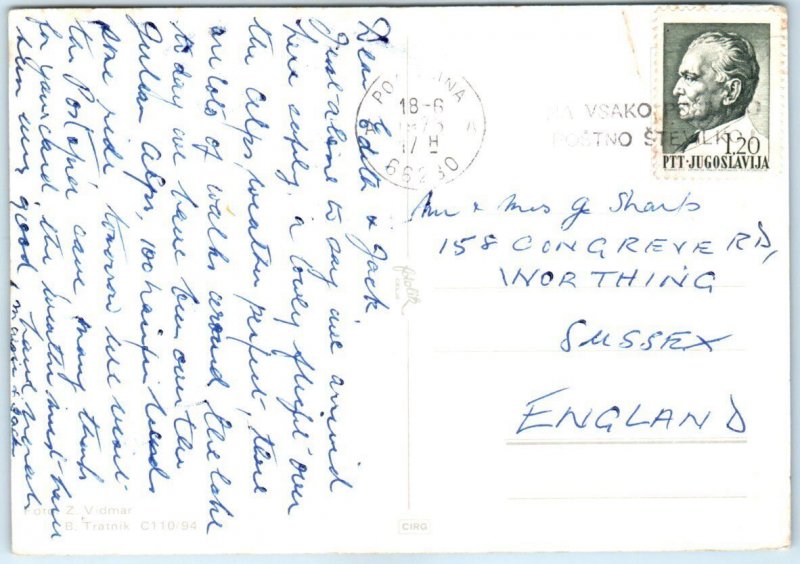 Dear Edith & Jack
Just a line to say we arrived
here safely, a lovely flight over
the Alps, weather perfect, there
are lots of walks around the lake
today we have been over the
Julian Alps, 100 hairpin bends
some ride, tomorrow we visit
the Postojna cave many thanks
for your card, the weather must have
been very good,
POSTOJNA
18-6
1975
17 H
66230
NA VSAKO
POŠTNO ŠTEVILKO
1.20
PTT·JUGOSLAVIJA
Mr & Mrs J Sharp
158 CONGREVE RD,
WORTHING
SUSSEX
ENGLAND
Foto: Z. Vidmar
B. Tratnik C110/94
CIRG